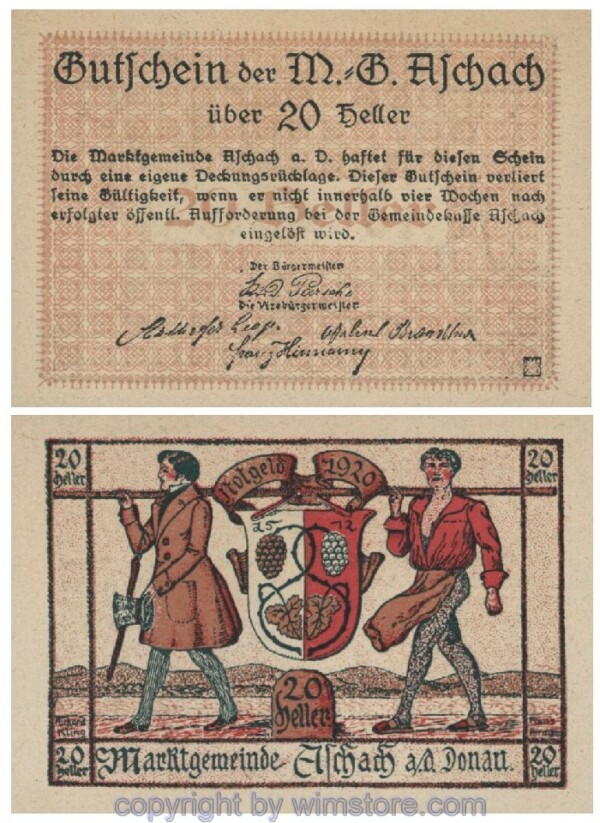 Gutschein der M.=G. Aschach
über 20 Heller
Die Marktgemeinde Aschach a. D. haftet für diesen Schein
durch eine eigene Deckungsrücklage. Dieser Gutschein verliert
seine Gültigkeit, wenn er nicht innerhalb vier Wochen nach
erfolgter öffentl. Aufforderung bei der Gemeindekasse Aschach
eingelöst wird.
Der Bürgermeister
Die Vizebürgermeister
20 Heller
Notgeld 1920
20 Heller
15 12
20 Heller
Richard Kling
20 Heller
Marktgemeinde Aschach a/d. Donau.
20 Heller
copyright by wimstore.com